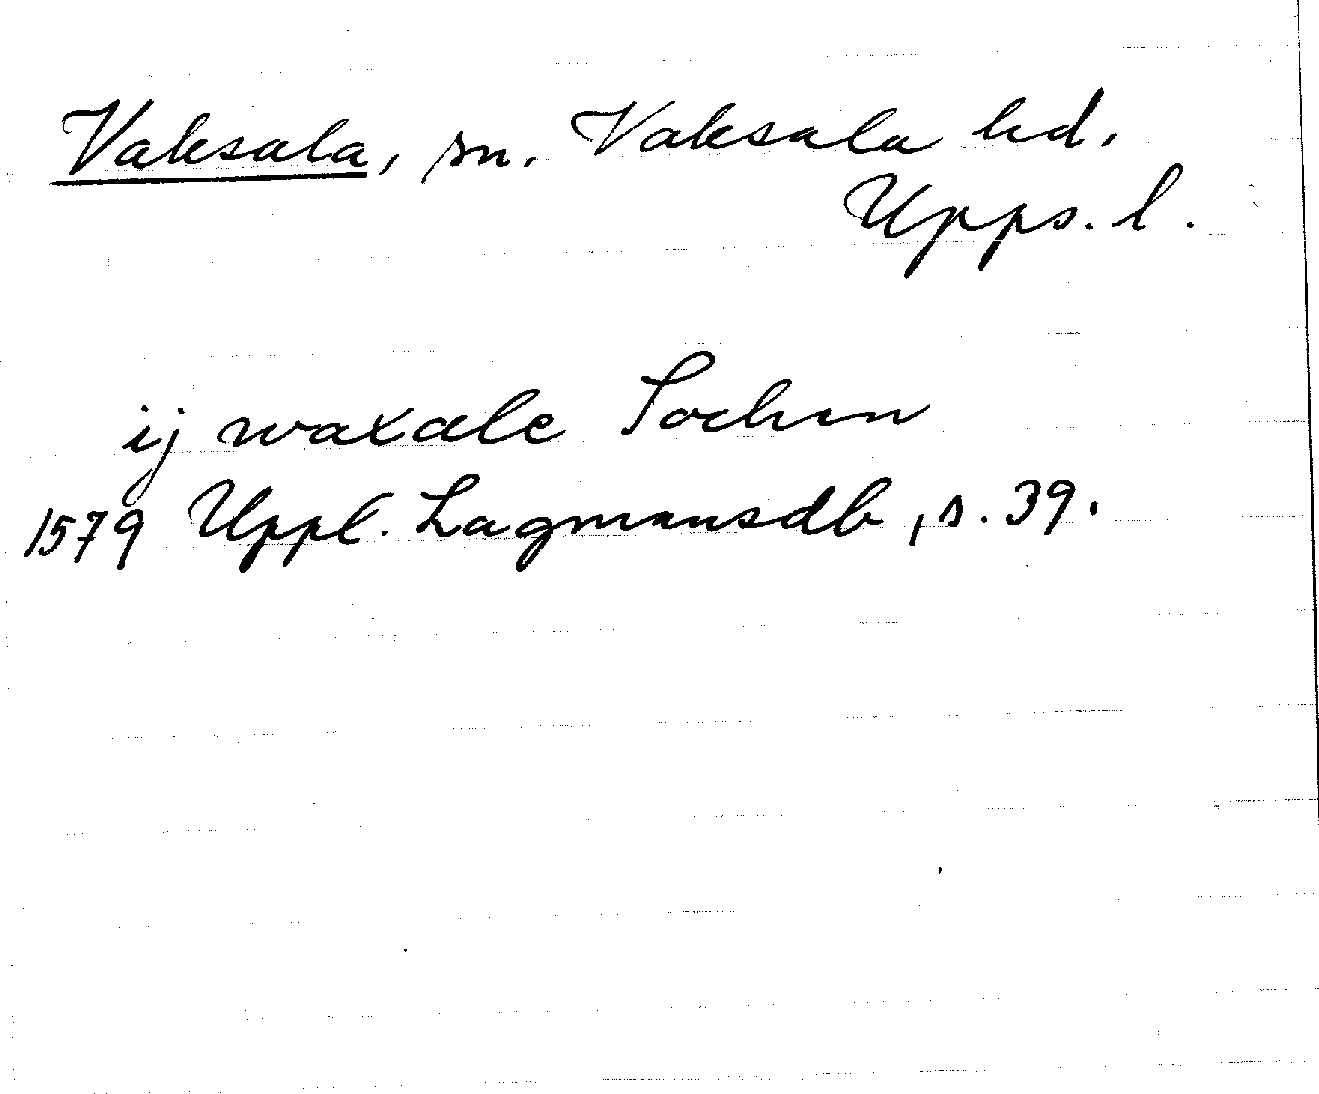 Vaksala, sn. Vaksala hd.
Upps. l.
ij waxale Sochen
1579 Uppl. Lagmansdb, s. 39.